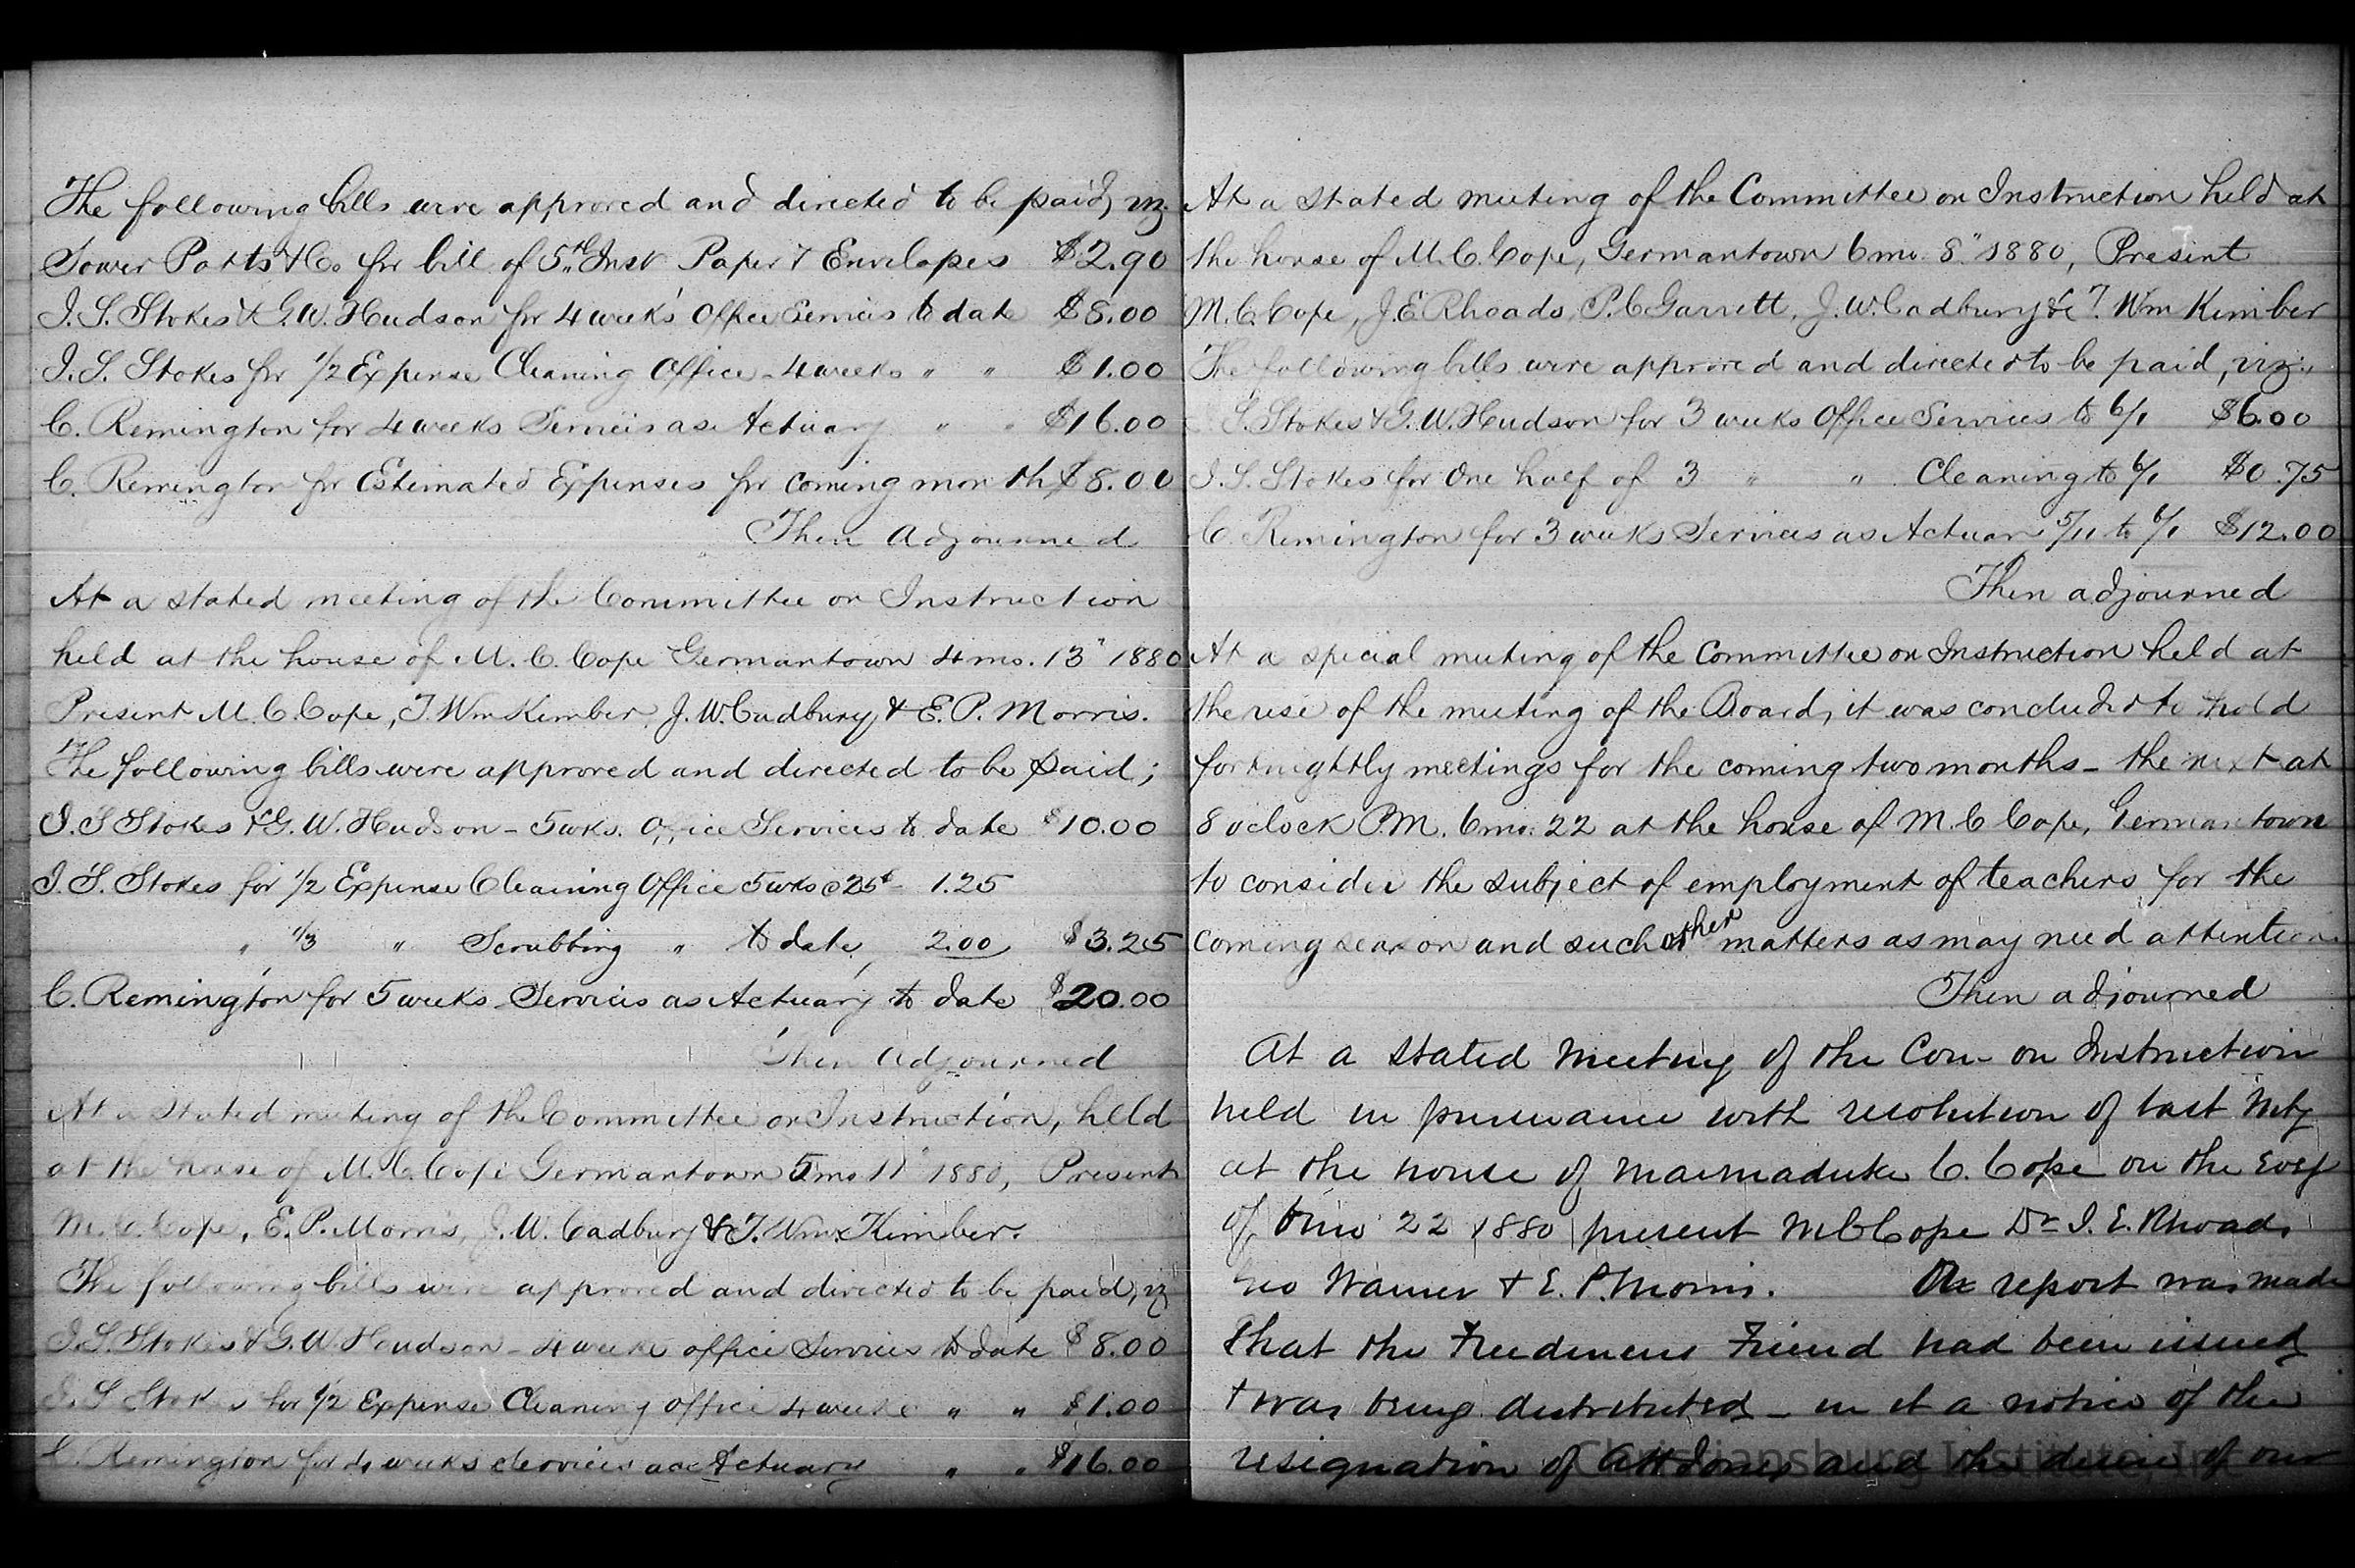 The following bills were approved and directed to be paid, viz.
Sower Potts & Co. for bill of 5th Inst Paper & Envelopes $2.90
I. S. Stokes & G. W. Hudson for 4 weeks' Office Services to date $8.00
I. S. Stokes for 1/2 Expense Cleaning Office - 4 weeks " " $1.00
C. Remington for 4 weeks Services as Actuary " " $16.00
C. Remington for Estimated Expenses for coming month $8.00
Then adjourned
At a stated meeting of the Committee on Instruction
held at the house of M. C. Cope Germantown 4 mo. 13" 1880
Present M. C. Cope, T. Wm Kimber, J. W. Cadbury, & E. P. Morris.
The following bills were approved and directed to be paid;
I. S Stokes & G. W. Hudson - 5 wks. Office Services to date $10.00
I. S. Stokes for 1/2 Expense Cleaning Office 5 wks @ 25¢ - 1.25
" 1/3 " Scrubbing " to date, 2.00 $3.25
C. Remington for 5 weeks Services as Actuary to date $20.00
Then adjourned
At a stated meeting of the Committee on Instruction, held
at the house of M. C. Cope Germantown 5 mo 11" 1880, Present
M. C. Cope, E. P. Morris, J. W. Cadbury & T. Wm. Kimber.
The following bills were approved and directed to be paid, viz
I. S. Stokes & G. W. Hudson - 4 weeks office Services to date $8.00
I. S Stokes for 1/2 Expense Cleaning office 4 weeks " " $1.00
C. Remington for 4 weeks Services as Actuary " " $16.00
At a stated meeting of the Committee on Instruction held at
the house of M. C. Cope, Germantown 6 mo. 8" 1880, Present
M. C. Cope, J. E. Rhoads, P. C Garrett, J. W. Cadbury & T. Wm Kimber
The following bills were approved and directed to be paid, viz.,
S. Stokes & G. W. Hudson for 3 weeks Office Services to 6/1 $6.00
I. S. Stokes for One half of 3 " " Cleaning to 6/1 $0.75
C. Remington for 3 weeks Services as Actuary 5/11 to 6/1 $12.00
Then adjourned
At a special meeting of the Committee on Instruction held at
the rise of the meeting of the Board, it was concluded to hold
fortnightly meetings for the coming two months - the next at
8 oclock P.M. 6 mo. 22 at the house of M C Cope, Germantown
to consider the subject of employment of teachers for the
coming season and such other matters as may need attention.
Then adjourned
At a stated Meeting of the Com- on Instruction
held in pursuance with resolution of last Mtg
at the house of Marmaduke C. Cope on the Eveg
of 6 mo 22 1880 present M C Cope Dr J. E. Rhoads
Geo Warner & E. P. Morris. report was made
that the Freedmens Friend had been issued
& was being distributed - in it a notice of the
resignation of A H Jones and the desire of our
Christiansburg Institute, Inc